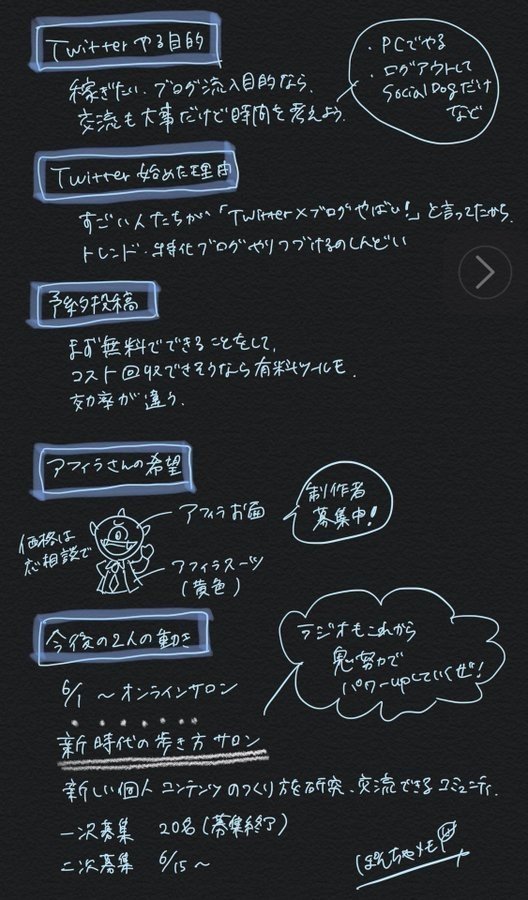 Twitterやる目的
稼ぎたい、ブログ流入目的なら、
交流も大事だけど時間を考えよう。
・PCでやる
・ログアウトして
SocialDogだけ
など
Twitter始めた理由
すごい人たちが「Twitter×ブログやばい!」と言ってたから
トレンド・特化ブログやりつづけるのしんどい
予約投稿
まず無料でできることをして、
コスト回収できそうなら有料ツールも。
効率が違う。
アフィラさんの希望
価格は
応相談で
アフィラお面
アフィラスーツ
(黄色)
制作者
募集中!
今後の2人の動き
ラジオもこれから
鬼努力で
パワーupしていくぜ!
6/1 〜オンラインサロン
新時代の歩き方サロン
新しい個人コンテンツのつくり方を研究、交流できるコミュニティ.
一次募集 20名(募集終了)
二次募集 6/15〜
ぽんちゃメモ